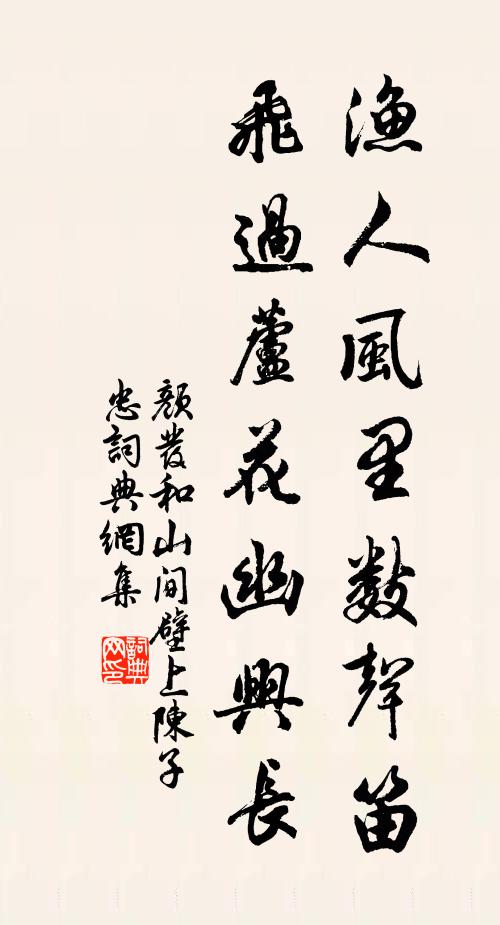 漁人風里數聲笛
飛過蘆花幽興長
顏發和山間壁上陳子
忠詞典網集
詞典
网印